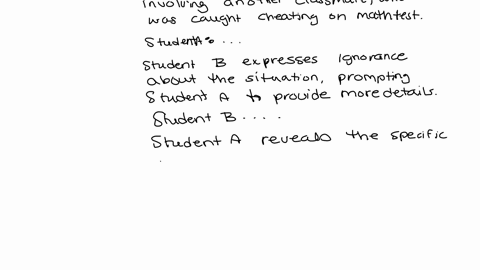 involving another classmate, who
was caught cheating on math test.
Student A: ...
Student B expresses ignorance
about the situation, prompting
Student A to provide more details.
Student B ....
Student A reveals the specific